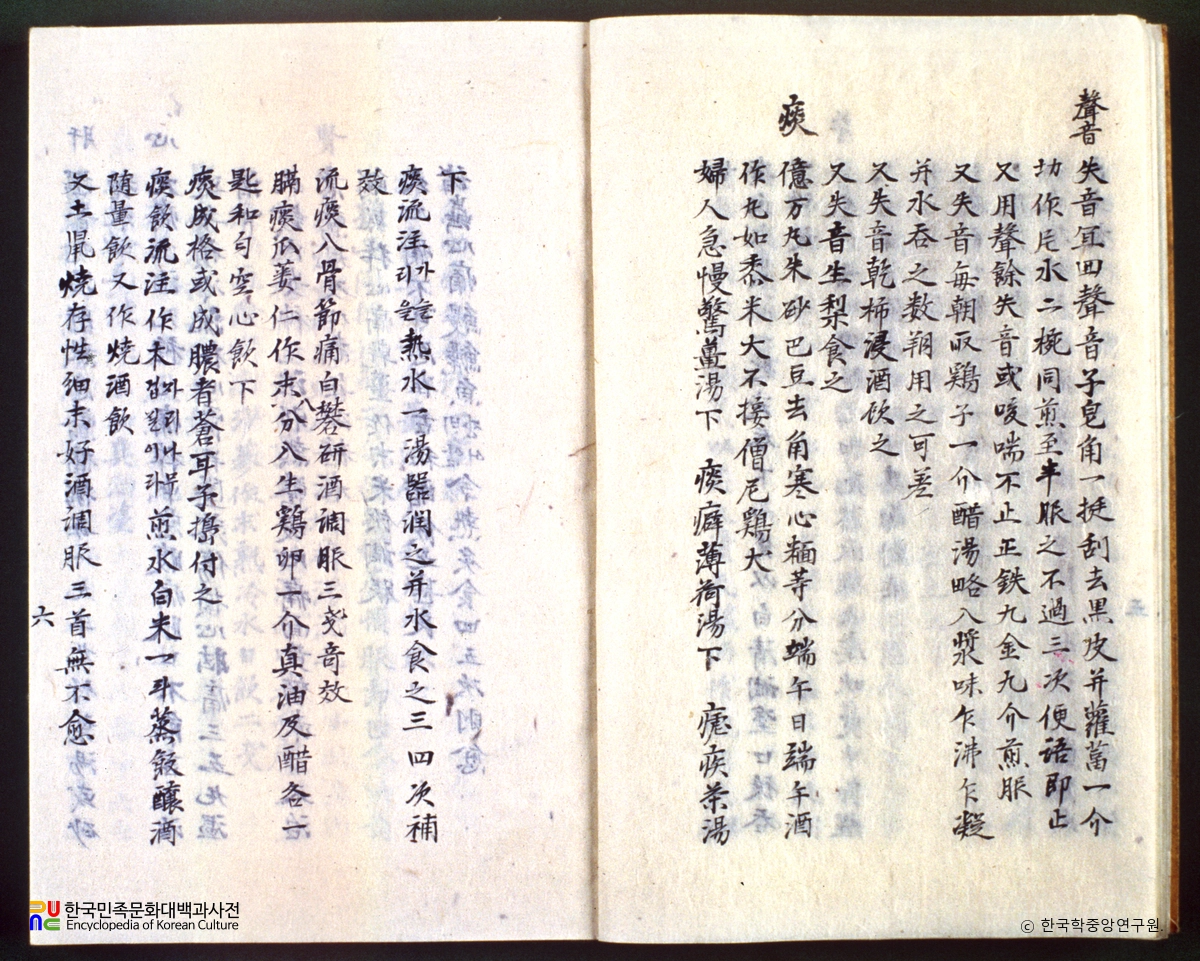 聲音
失音冝四聲音子皂角一挺刮去黑皮并蘿葍一介
切作片水二椀同煎至半服之不過三次便語即止
又用聲餘失音或咳喘不止正鉄九金九介煎服
又失音每朝取鷄子一介醋湯略入漿味乍沸乍凝
并水吞之数朔用之可差
又失音乾柿浸酒飲之
又失音生梨食之
痰
億万丸朱砂巴豆去角寒心麵等分端午日端午酒
作丸如黍米大不接僧尼鷄犬
婦人急慢驚薑湯下 痰癖薄荷湯下 瘧疾茶湯
下
痰流注 熱水一湯器潤之并水食之三四次補
效
流痰入骨節痛白礬研酒調服三戔竒效
膈痰瓜蔞仁作末八分入生鷄卵一介真油及醋各一
匙和勻空心飲下
痰成格或成膿者蒼耳子搗付之
痰飮流注作木겁파리나모일이라 煎水白米一斗蒸飯釀酒
随量飮又作燒酒飮
又土鼠燒存性細末好酒調服三首無不愈
六
한국민족문화대백과사전
Encyclopedia of Korean Culture
ⓒ 한국학중앙연구원.